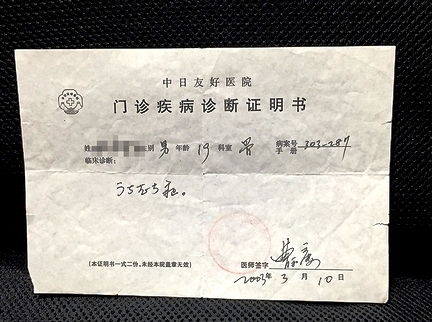 中日友好医院
门诊疾病诊断证明书
姓 性别 男 年龄 19 科室 骨 病案号 手册 303-287
临床诊断：
医师签字
(本证明书一式二份，未经本院盖章无效)
2003年 3 月 10 日